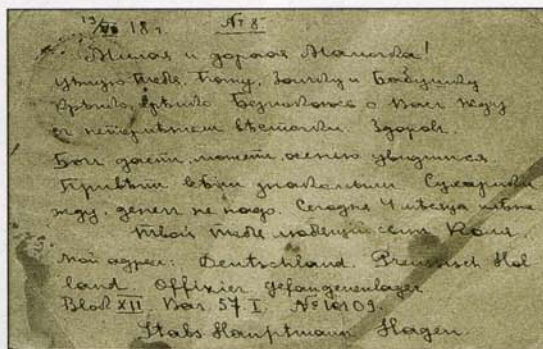 13/VI 18 г. № 8
Милая и дорогая Мамочка!
Целую тебя, Тому, Зоичку и Бабушку
крѣпко, крѣпко. Безпокоюсь о Васъ жду
съ нетерпѣніемъ вѣсточки. Здоровъ.
Богъ дастъ, можетъ, осенью увидимся.
Привѣтъ всѣмъ знакомымъ Сухарики
жду, денегъ не надо. Сегодня 4 мѣсяца плѣна
Твой тебя любящій сынъ Коля.
Мой адрес: Deutschland. Preussisch Hol-
land. Offizier gefangenenlager
Block XII Bar. 57. I. № 10109.
Stabs Hauptmann Hagen.